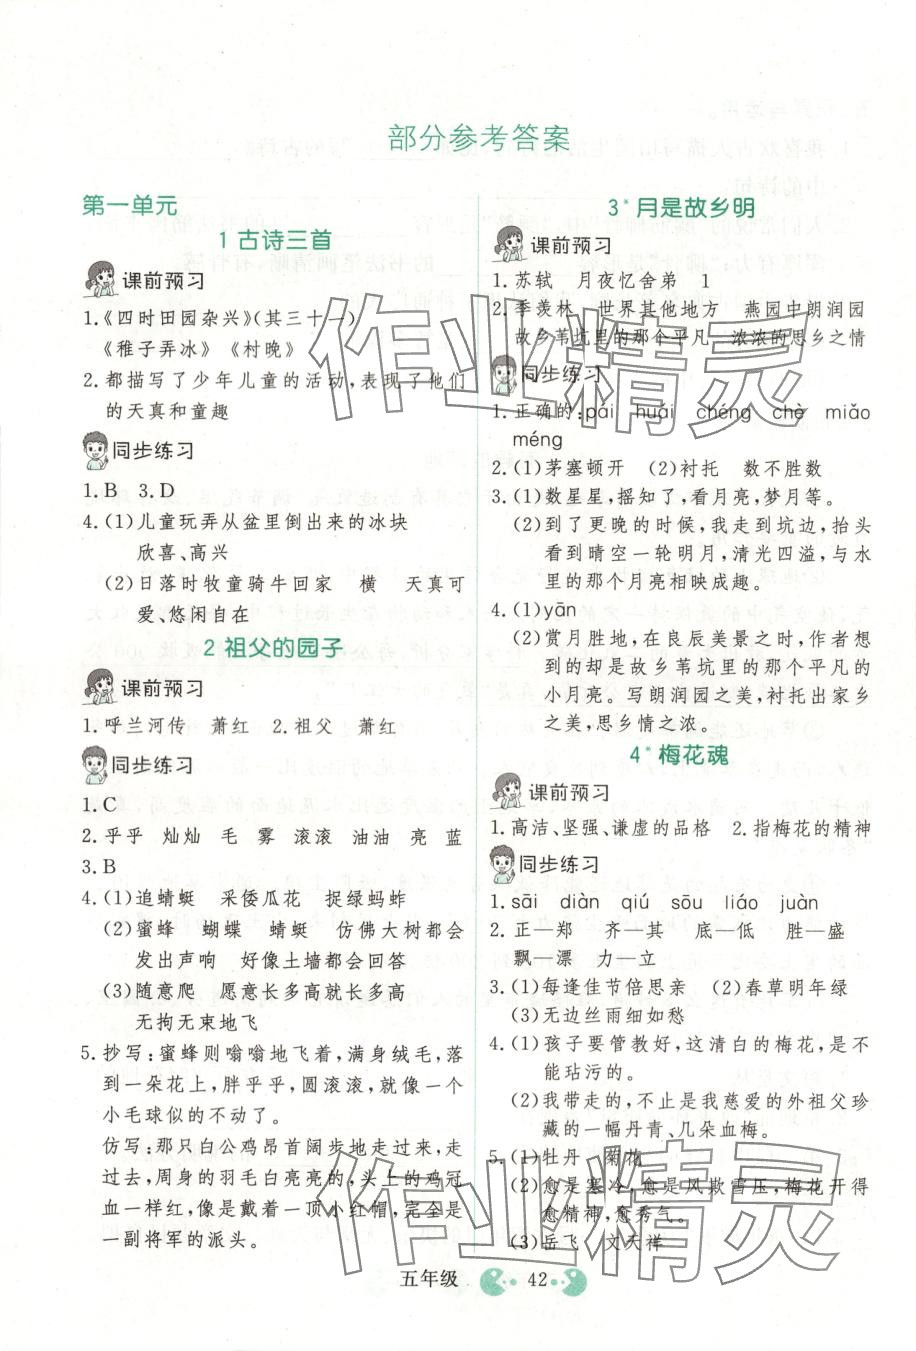 部分参考答案
第一单元
1 古诗三首
课前预习
1.《四时田园杂兴》(其三十一)
《稚子弄冰》 《村晚》
2.都描写了少年儿童的活动,表现了他们
的天真和童趣
同步练习
1.B 3.D
4.(1)儿童玩弄从盆里倒出来的冰块
欣喜、高兴
(2)日落时牧童骑牛回家 横 天真可
爱、悠闲自在
2 祖父的园子
课前预习
1.呼兰河传 萧红 2.祖父 萧红
同步练习
1.C
2.乎乎 灿灿 毛 雾 滚滚 油油 亮 蓝
3.B
4.(1)追蜻蜓 采倭瓜花 捉绿蚂蚱
(2)蜜蜂 蝴蝶 蜻蜓 仿佛大树都会
发出声响 好像土墙都会回答
(3)随意爬 愿意长多高就长多高
无拘无束地飞
5.抄写:蜜蜂则嗡嗡地飞着,满身绒毛,落
到一朵花上,胖乎乎,圆滚滚,就像一个
小毛球似的不动了。
仿写:那只白公鸡昂首阔步地走过来,走
过去,周身的羽毛白亮亮的,头上的鸡冠
血一样红,像是戴着一顶小红帽,完全是
一副将军的派头。
3*月是故乡明
课前预习
1.苏轼 月夜忆舍弟 1
2.季羡林 世界其他地方 燕园中朗润园
故乡苇坑里的那个平凡 浓浓的思乡之情
同步练习
1.正确的:pái huái chéng chè miǎo
méng
2.(1)茅塞顿开 (2)衬托 数不胜数
3.(1)数星星,摇知了,看月亮,梦月等。
(2)到了更晚的时候,我走到坑边,抬头
看到晴空一轮明月,清光四溢,与水
里的那个月亮相映成趣。
4.(1)yān
(2)赏月胜地,在良辰美景之时,作者想
到的却是故乡苇坑里的那个平凡的
小月亮。写朗润园之美,衬托出家乡
之美,思乡情之浓。
4*梅花魂
课前预习
1.高洁、坚强、谦虚的品格 2.指梅花的精神
同步练习
1.sāi diàn qiú sōu liáo juàn
2.正—郑 齐—其 底—低 胜—盛
飘—漂 力—立
3.(1)每逢佳节倍思亲 (2)春草明年绿
(3)无边丝雨细如愁
4.(1)孩子要管教好,这清白的梅花,是不
能玷污的。
(2)我带走的,不止是我慈爱的外祖父珍
藏的一幅丹青、几朵血梅。
5.(1)牡丹 菊花
(2)愈是寒冷,愈是风欺雪压,梅花开得
愈精神,愈秀气。
(3)岳飞 文天祥
五年级 42
作业精灵
作业精灵